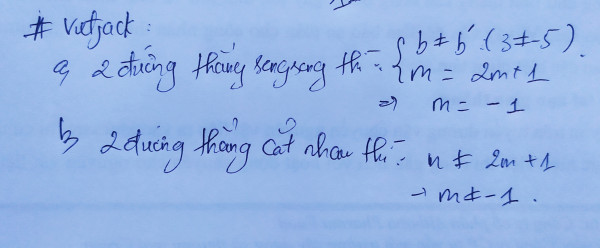 # Vietjack :
a, 2 đường thẳng songsong thì : { b ≠ b' (3 ≠ -5) .
m = 2m+1
=> m = -1
b, 2 đường thẳng cắt nhau thì : m ≠ 2m+1
→ m ≠ -1 .